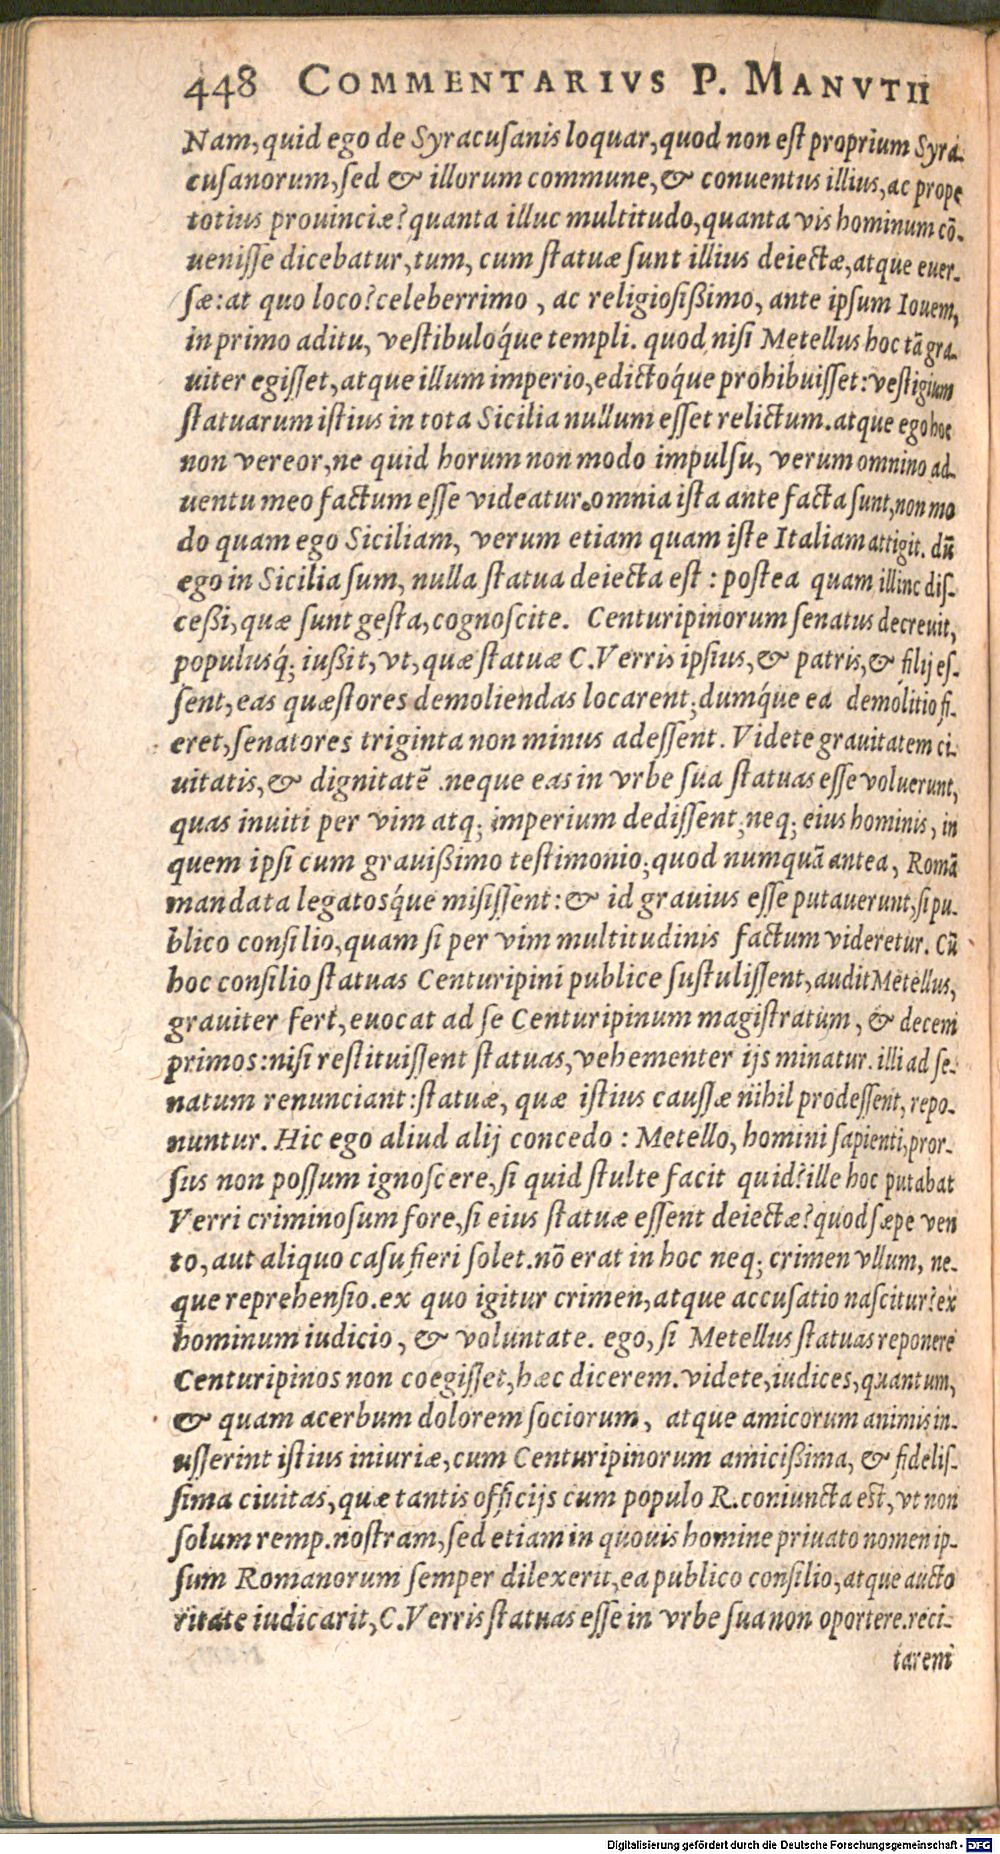 448 COMMENTARIVS P. MANVTII
Nam, quid ego de Syracusanis loquar, quod non est proprium Syra-
cusanorum, sed & illorum commune, & conuentus illius, ac prope
totius prouinciæ? quanta illuc multitudo, quanta vis hominum cō-
uenisse dicebatur, tum, cum statuæ sunt illius deiectæ, atque euer-
sæ: at quo loco? celeberrimo, ac religiosißimo, ante ipsum Iouem,
in primo aditu, vestibuloq́ue templi. quod nisi Metellus hoc tā gra-
uiter egisset, atque illum imperio, edictoq́ue prohibuisset: vestigium
statuarum istius in tota Sicilia nullum esset relictum. atque ego hoc
non vereor, ne quid horum non modo impulsu, verum omnino ad-
uentu meo factum esse videatur. omnia ista ante facta sunt, non mo
do quam ego Siciliam, verum etiam quam iste Italiam attigit. dū
ego in Sicilia sum, nulla statua deiecta est: postea quam illinc dis-
ceßi, quæ sunt gesta, cognoscite. Centuripinorum senatus decreuit,
populusq́; iußit, vt, quæ statuæ C. Verris ipsius, & patris, & filij es-
sent, eas quæstores demoliendas locarent; dumq́ue ea demolitio fi-
eret, senatores triginta non minus adessent. Videte grauitatem ci-
uitatis, & dignitatē. neque eas in vrbe sua statuas esse voluerunt,
quas inuiti per vim atq; imperium dedissent; neq; eius hominis, in
quem ipsi cum grauißimo testimonio; quod numquā antea, Romā
mandata legatosq́ue misissent: & id grauius esse putauerunt, si pu-
blico consilio, quam si per vim multitudinis factum videretur. Cū
hoc consilio statuas Centuripini publice sustulissent, audit Metellus,
grauiter fert, euocat ad se Centuripinum magistratum, & decem
primos: nisi restituissent statuas, vehementer ijs minatur. illi ad se-
natum renunciant: statuæ, quæ istius caussæ nihil prodessent, repo-
nuntur. Hic ego aliud alij concedo: Metello, homini sapienti, pror-
sus non possum ignoscere, si quid stulte facit quid? ille hoc putabat
Verri criminosum fore, si eius statuæ essent deiectæ? quod sæpe ven
to, aut aliquo casu fieri solet. nō erat in hoc neq; crimen vllum, ne-
que reprehensio. ex quo igitur crimen, atque accusatio nascitur? ex
hominum iudicio, & voluntate. ego, si Metellus statuas reponere
Centuripinos non coegisset, hæc dicerem. videte, iudices, quantum,
& quam acerbum dolorem sociorum, atque amicorum animis in-
usserint istius iniuriæ, cum Centuripinorum amicißima, & fidelis-
sima ciuitas, quæ tantis officijs cum populo R. coniuncta est, vt non
solum remp. nostram, sed etiam in quouis homine priuato nomen ip-
sum Romanorum semper dilexerit, ea publico consilio, atque aucto
ritate iudicarit, C. Verris statuas esse in vrbe sua non oportere. reci-
tarent
Digitalisierung gefördert durch die Deutsche Forschungsgemeinschaft - DFG